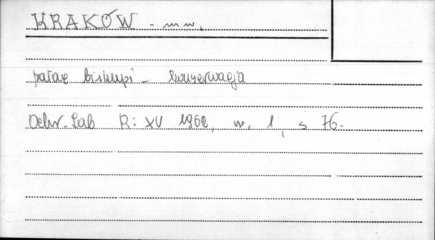 KRAKÓW - m w.
pałac biskupi - konserwacja
Ochr. Zab R: XV 1962, n. 1, s 76.